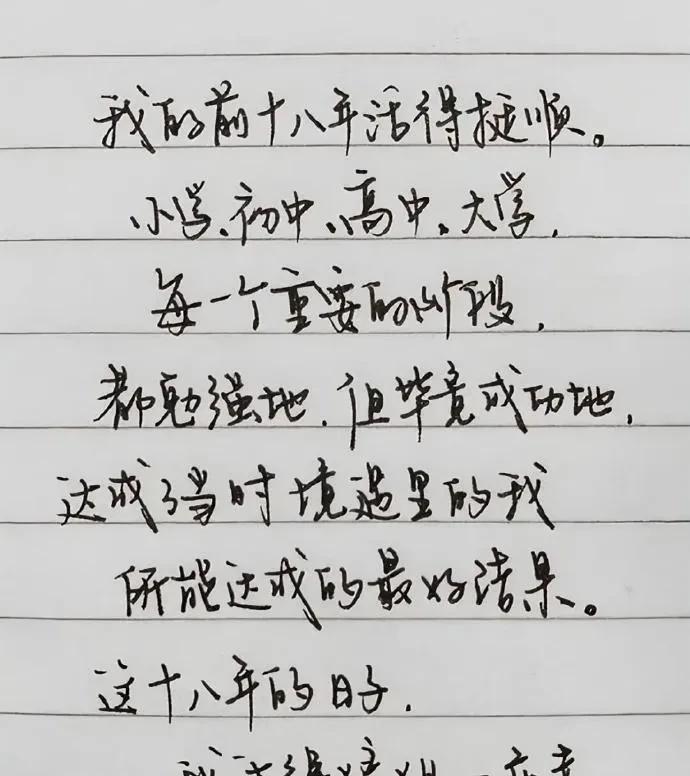 我的前十八年活得挺顺。
小学、初中、高中、大学,
每一个重要的阶段,
都勉强地,但毕竟成功地,
达成了当时境遇里的我
所能达成的最好结果。
这十八年的日子,